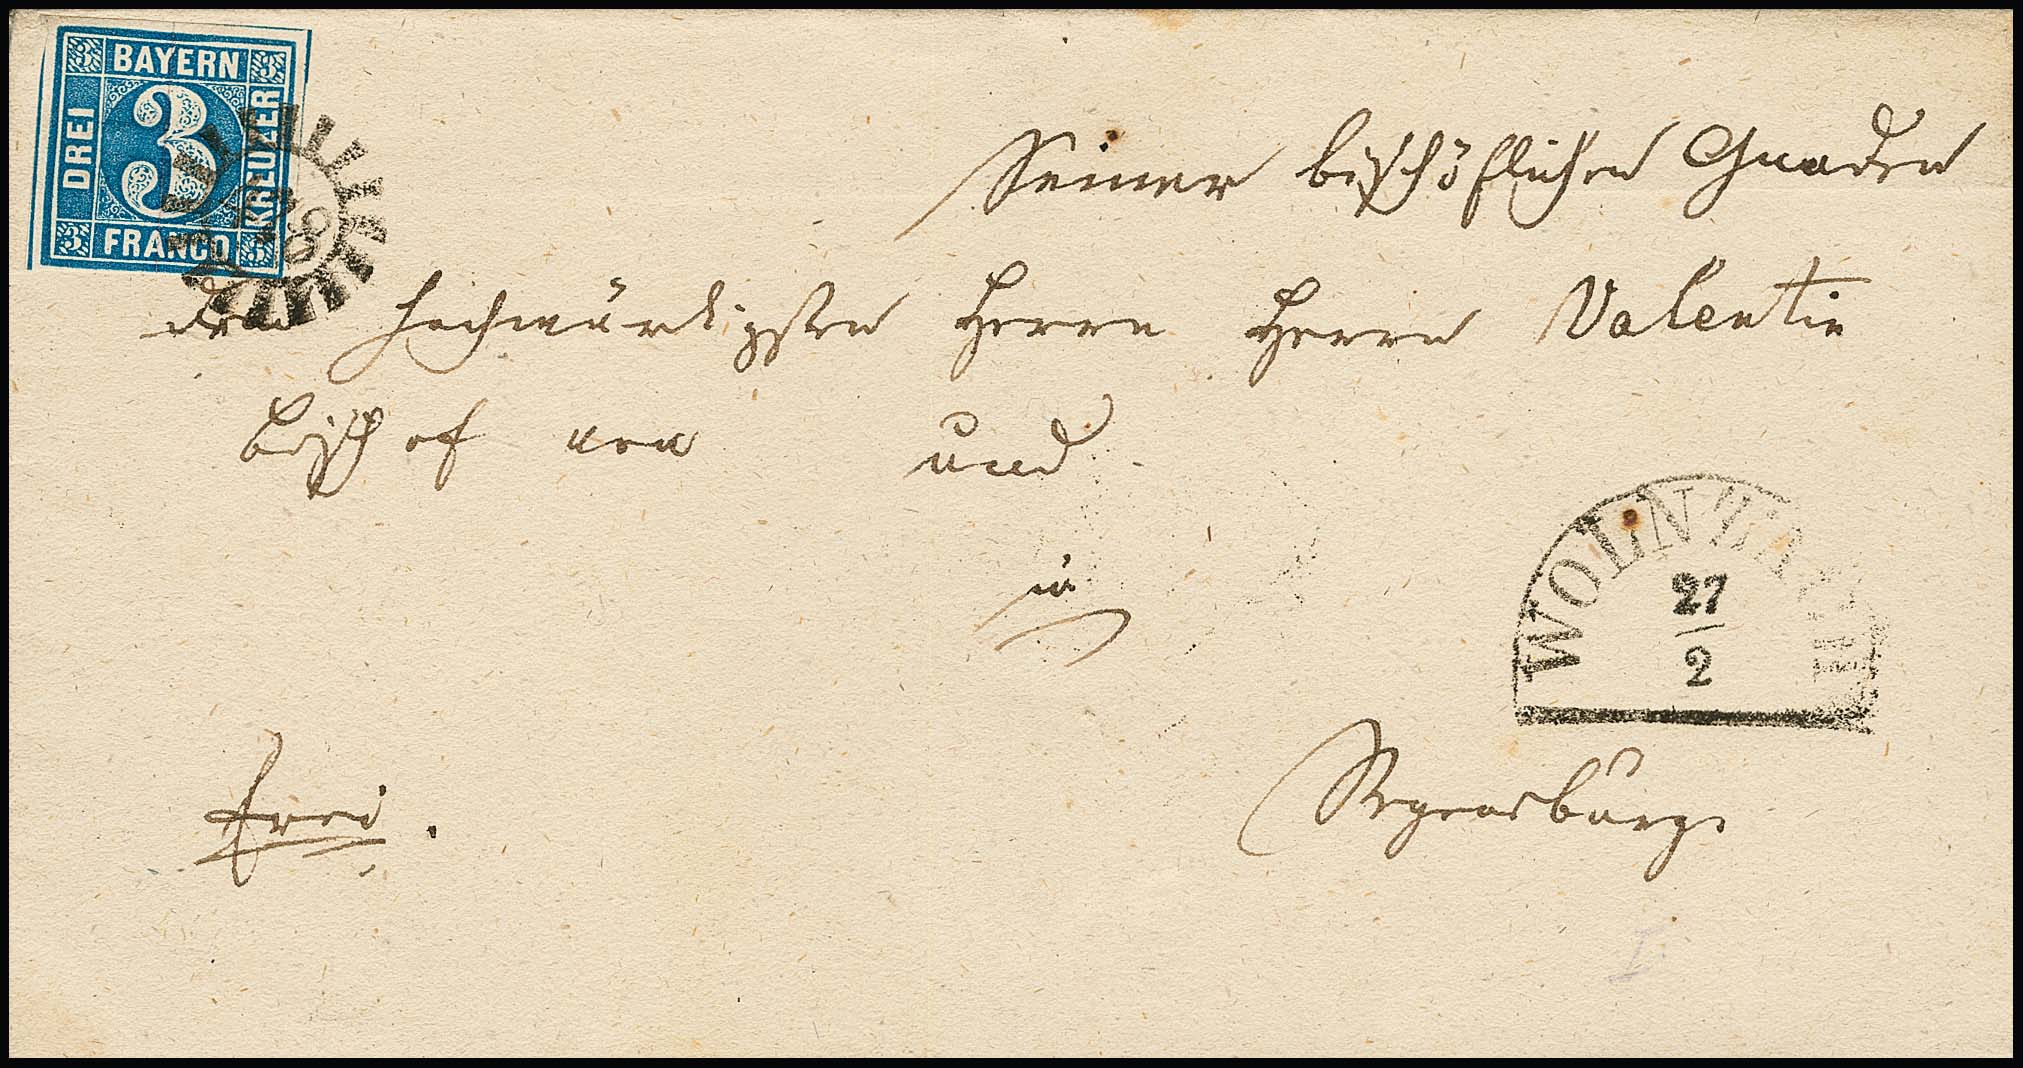 3 BAYERN 3
DREI 3 KREUZER
3 FRANCO 3
Seiner bischöflichen Gnaden
dem hochwürdigsten Herrn Herrn Valentin
Bischof von und
in
WOLNZACH
27
2
frei.
Regensburg.
I.